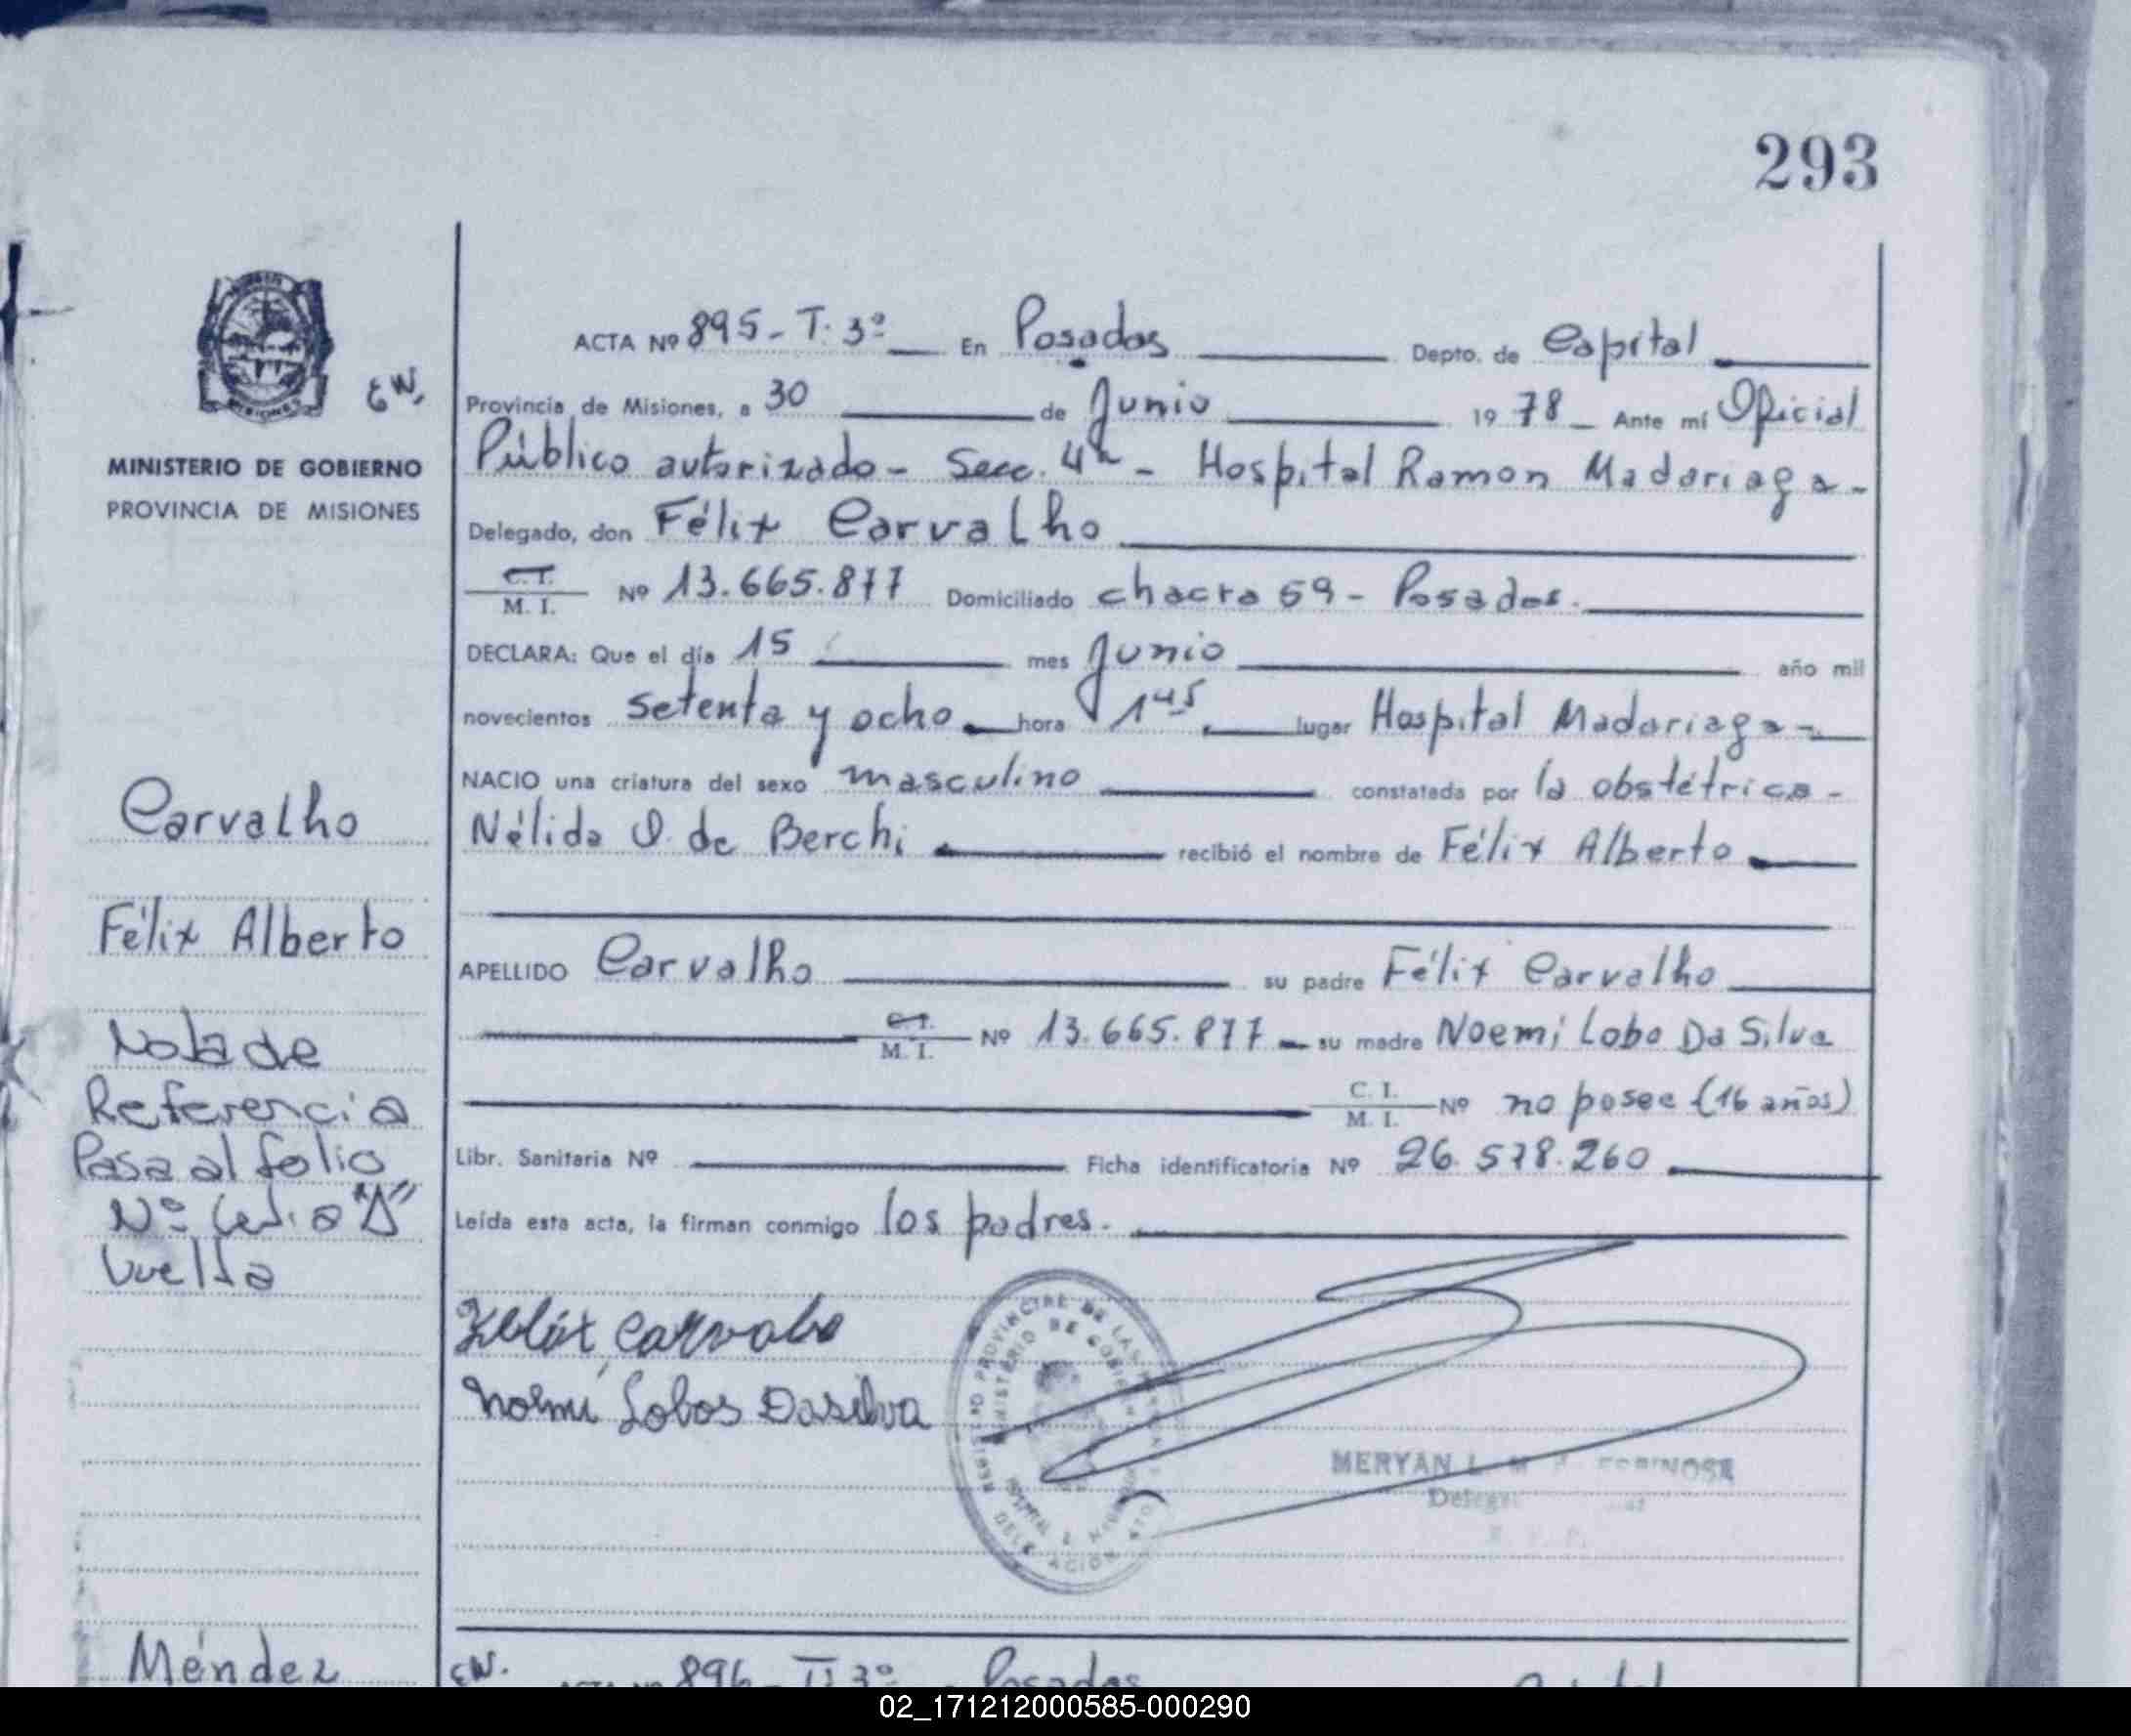 293
ACTA Nº 895- T. 3º En Posadas Depto. de Capital
EW.
Provincia de Misiones, a 30 de Junio 1978 Ante mí Oficial
MINISTERIO DE GOBIERNO
PROVINCIA DE MISIONES
Público autorizado- Secc. 4ª - Hospital Ramon Madariaga-
Delegado, don Félix Carvalho
C.I. M. I. Nº 13.665.877 Domiciliado chacra 59- Posadas.
DECLARA: Que el día 15 mes Junio año mil
novecientos setenta y ocho hora 1 45 lugar Hospital Madariaga-
NACIO una criatura del sexo masculino constatada por la obstétrica-
Nélida O. de Berchi recibió el nombre de Félix Alberto
Carvalho
Félix Alberto
APELLIDO Carvalho su padre Félix Carvalho
C.I. M. I. Nº 13.665.877 su madre Noemi Lobo Da Silva
C. I. M. I. Nº no posee (16 años)
Libr. Sanitaria Nº Ficha identificatoria Nº 26.578.260
Leída esta acta, la firman conmigo los padres.
Nota de
Referencia
Pasa al folio
Nº "A"
Vuelta
Félix Carvalho
Noemí Lobos Dasilva
MERYAN L. M
Méndez
EW.
ACTA Nº 896- T 3º Posadas Capital
02_171212000585-000290